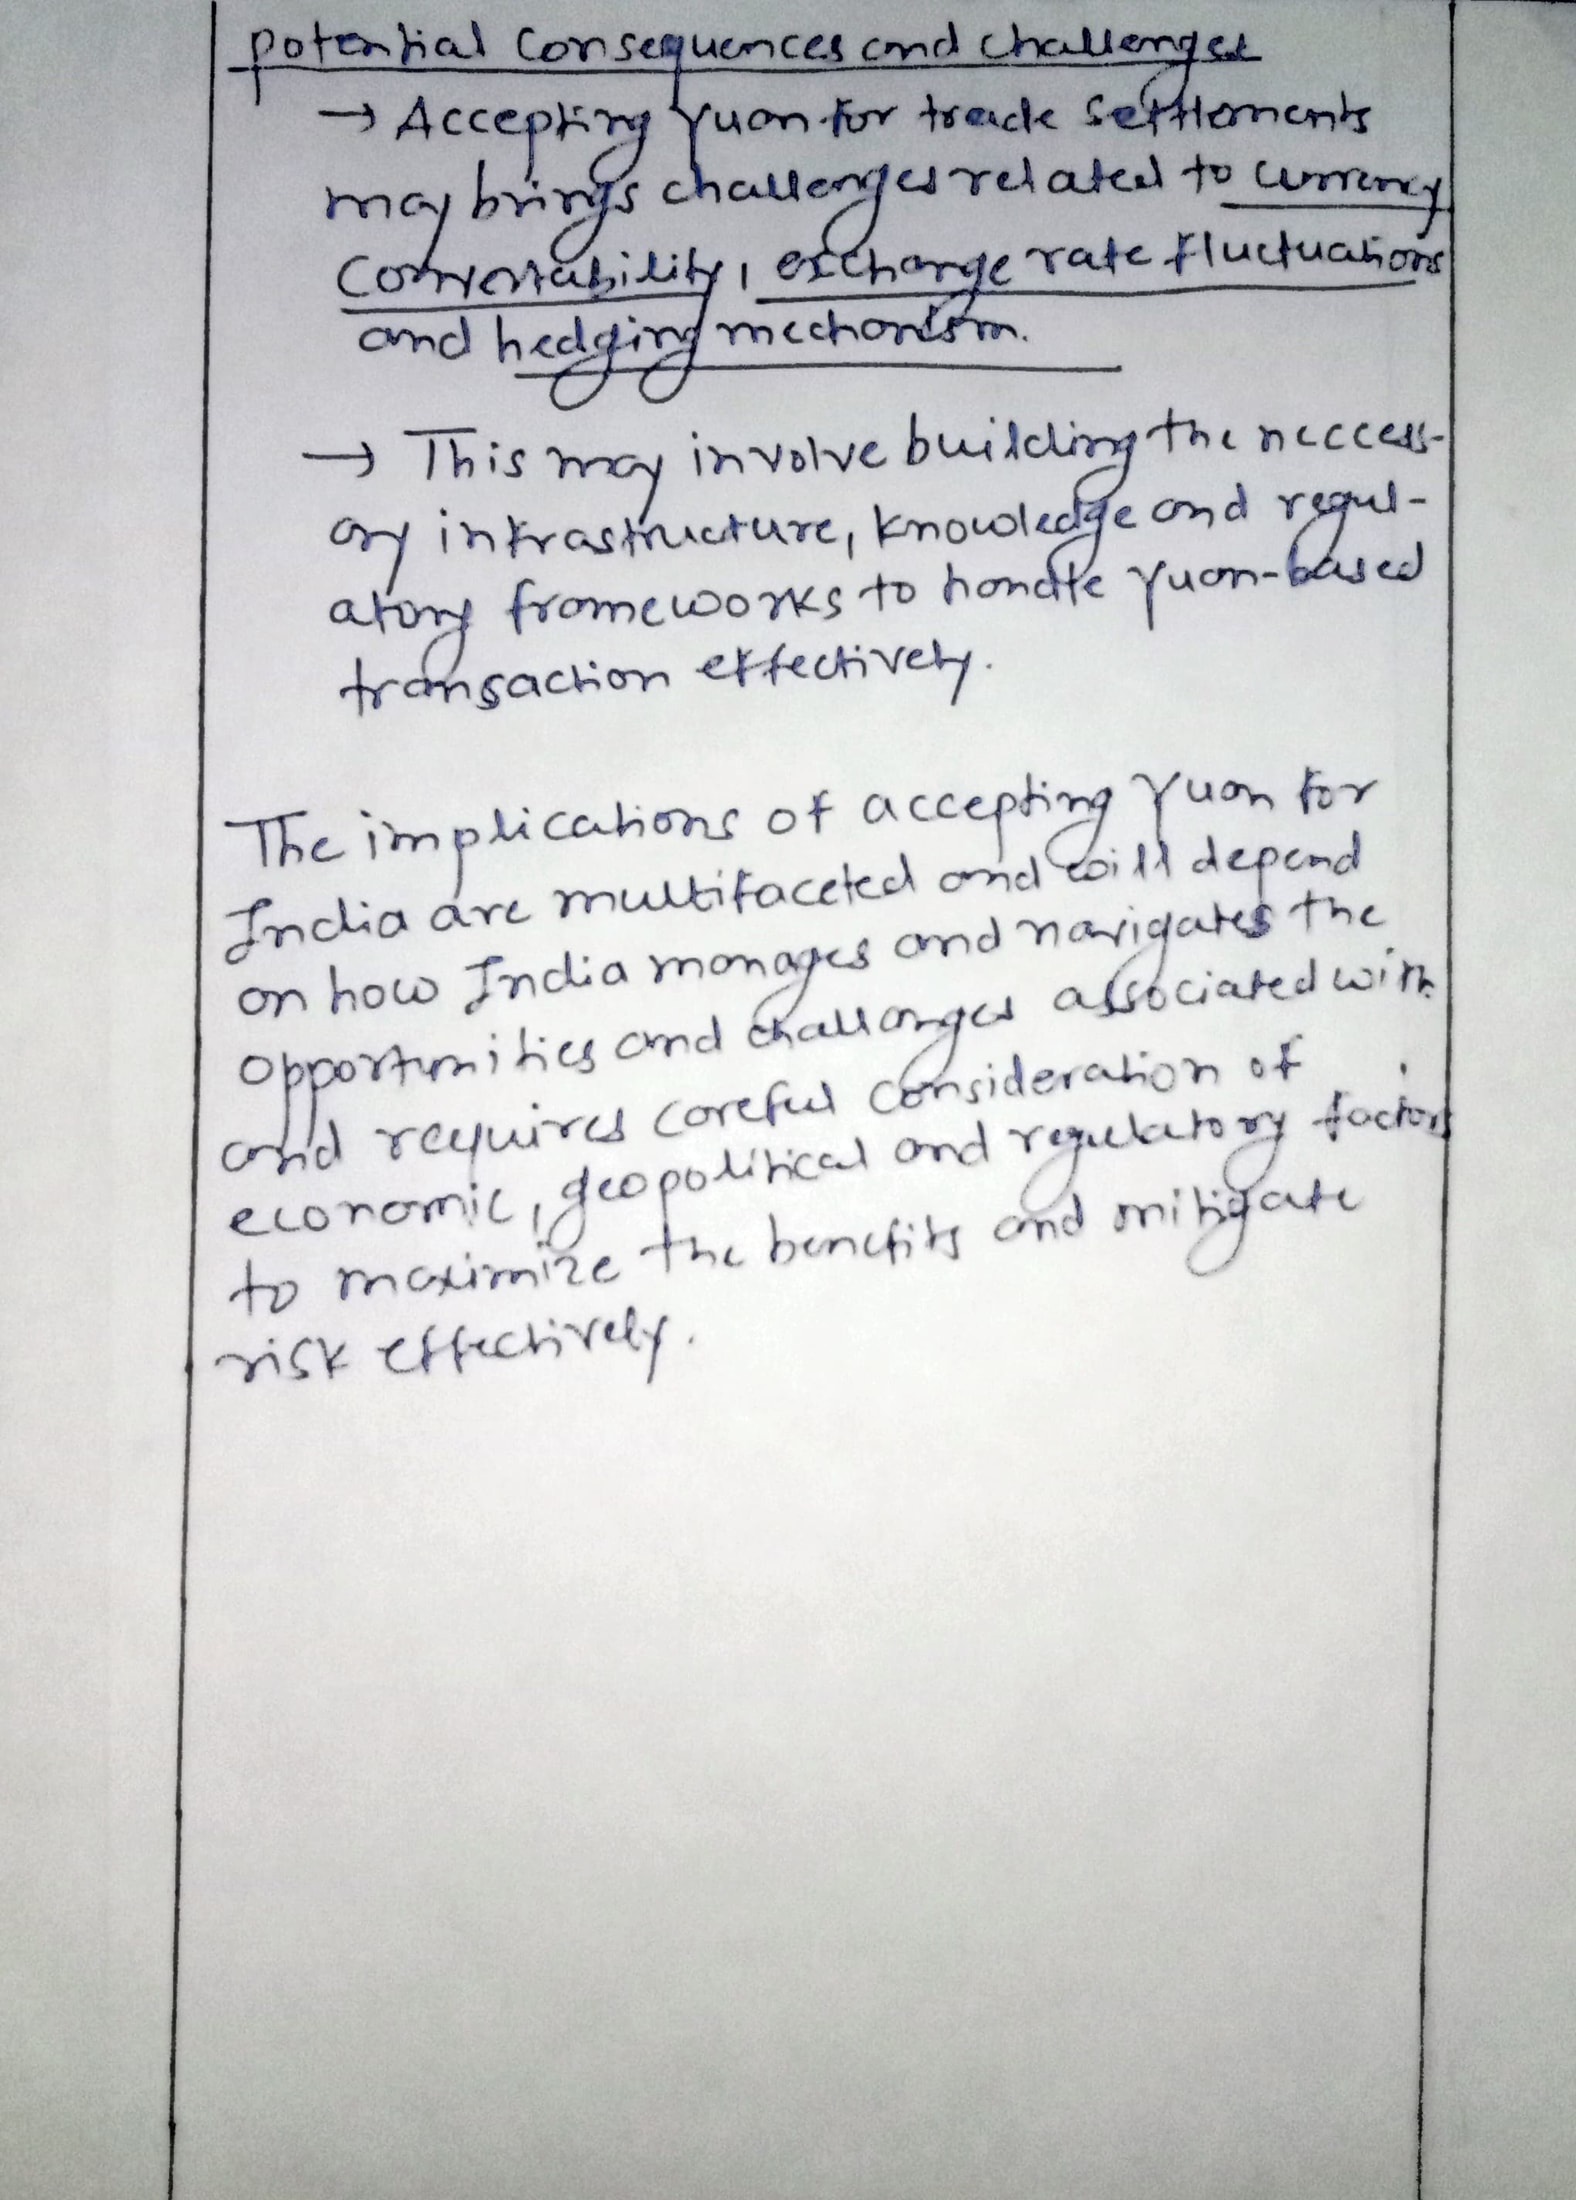 potential Consequences and challenges
→ Accepting Yuan for trade Settlements
may brings challenges related to currency
Convertability, exchange rate fluctuations
and hedging mechanism.
→ This may involve building the neccess-
ary infrastructure, knowledge and regul-
atory frameworks to handle Yuan-based
transaction effectively.
The implications of accepting Yuan for
India are multifaceted and will depend
on how India manages and navigates the
opportunities and challenges associated with
and requires careful consideration of
economic, geopolitical and regulatory factors
to maximize the benefits and mitigate
risk effectively.